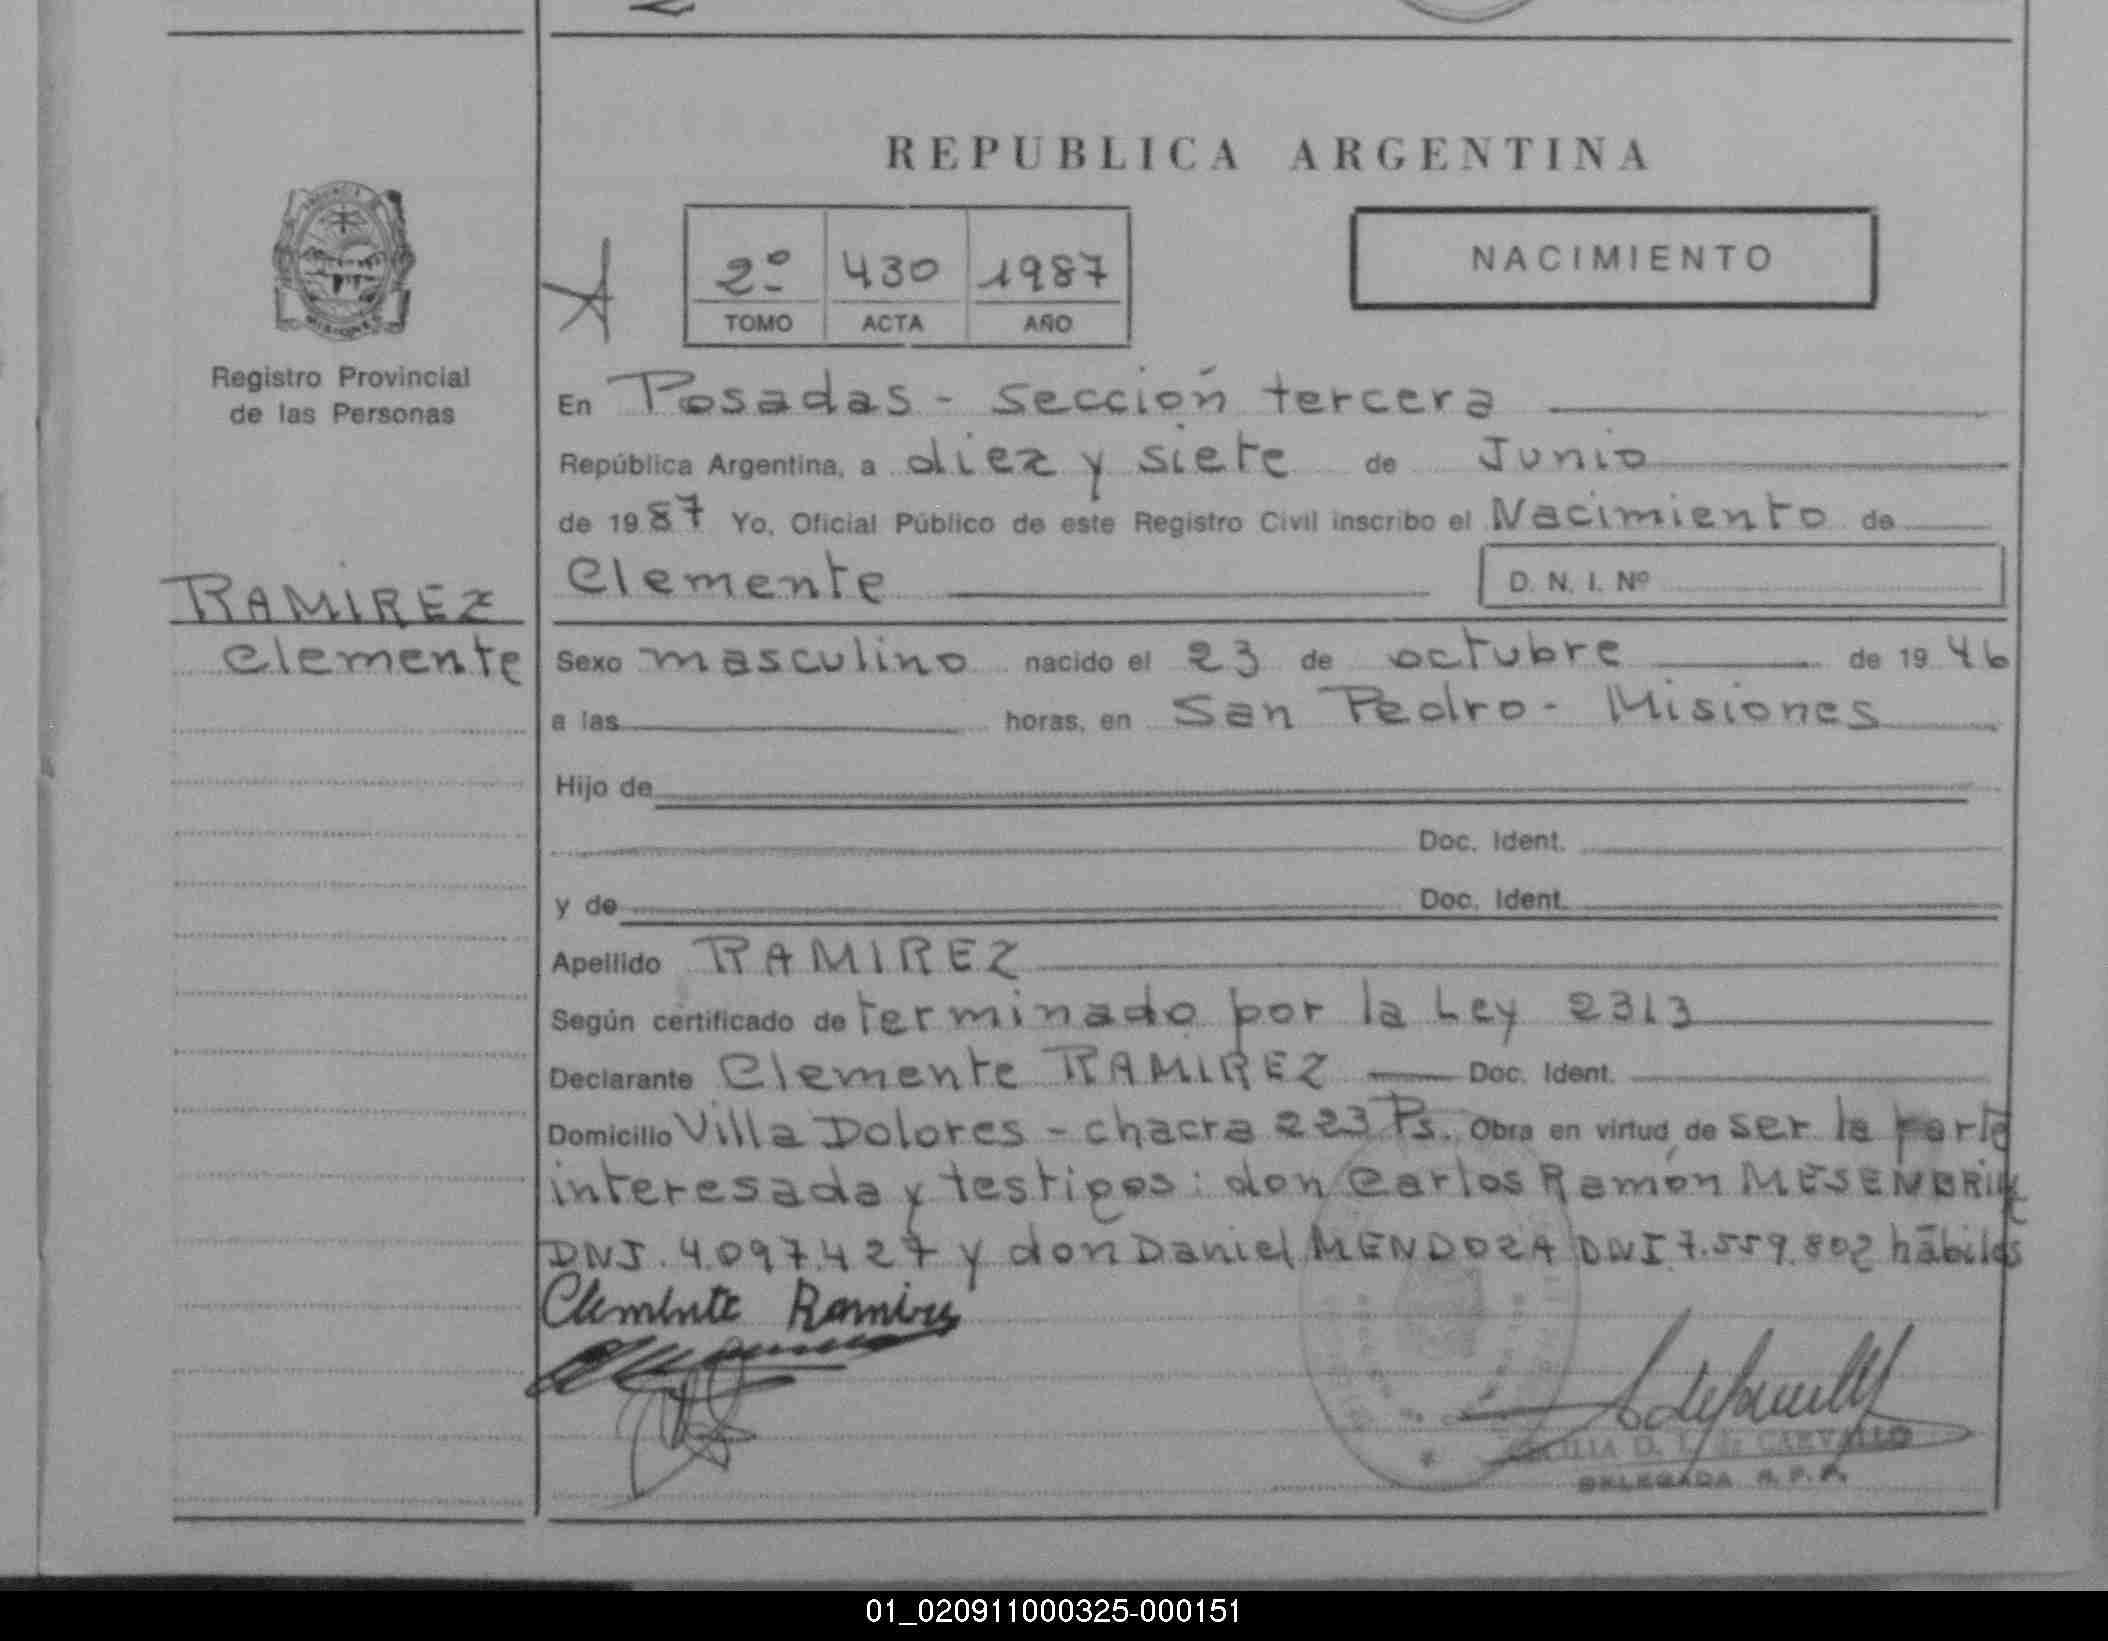 REPUBLICA ARGENTINA
2º 430 1987
TOMO ACTA AÑO
NACIMIENTO
Registro Provincial
de las Personas
RAMIREZ
Clemente
En Posadas - Sección tercera
República Argentina, a diez y siete de Junio
de 1987 Yo, Oficial Público de este Registro Civil inscribo el Nacimiento de
Clemente D. N. I. Nº
Sexo masculino nacido el 23 de octubre de 1946
a las horas, en San Pedro - Misiones
Hijo de
Doc. Ident.
y de Doc. Ident.
Apellido RAMIREZ
Según certificado de terminado por la Ley 2313
Declarante Clemente RAMIREZ Doc. Ident.
Domicilio Villa Dolores - chacra 223 Ps. Obra en virtud de ser la parte
interesada y testigos: don Carlos Ramón
DNI. 4.097.427 y don Daniel MENDOZA DNI 7.559.802 hábiles
Clemente Ramirez
D. T. de CARVALLO
DELEGADA R. P. P.
01_020911000325-000151